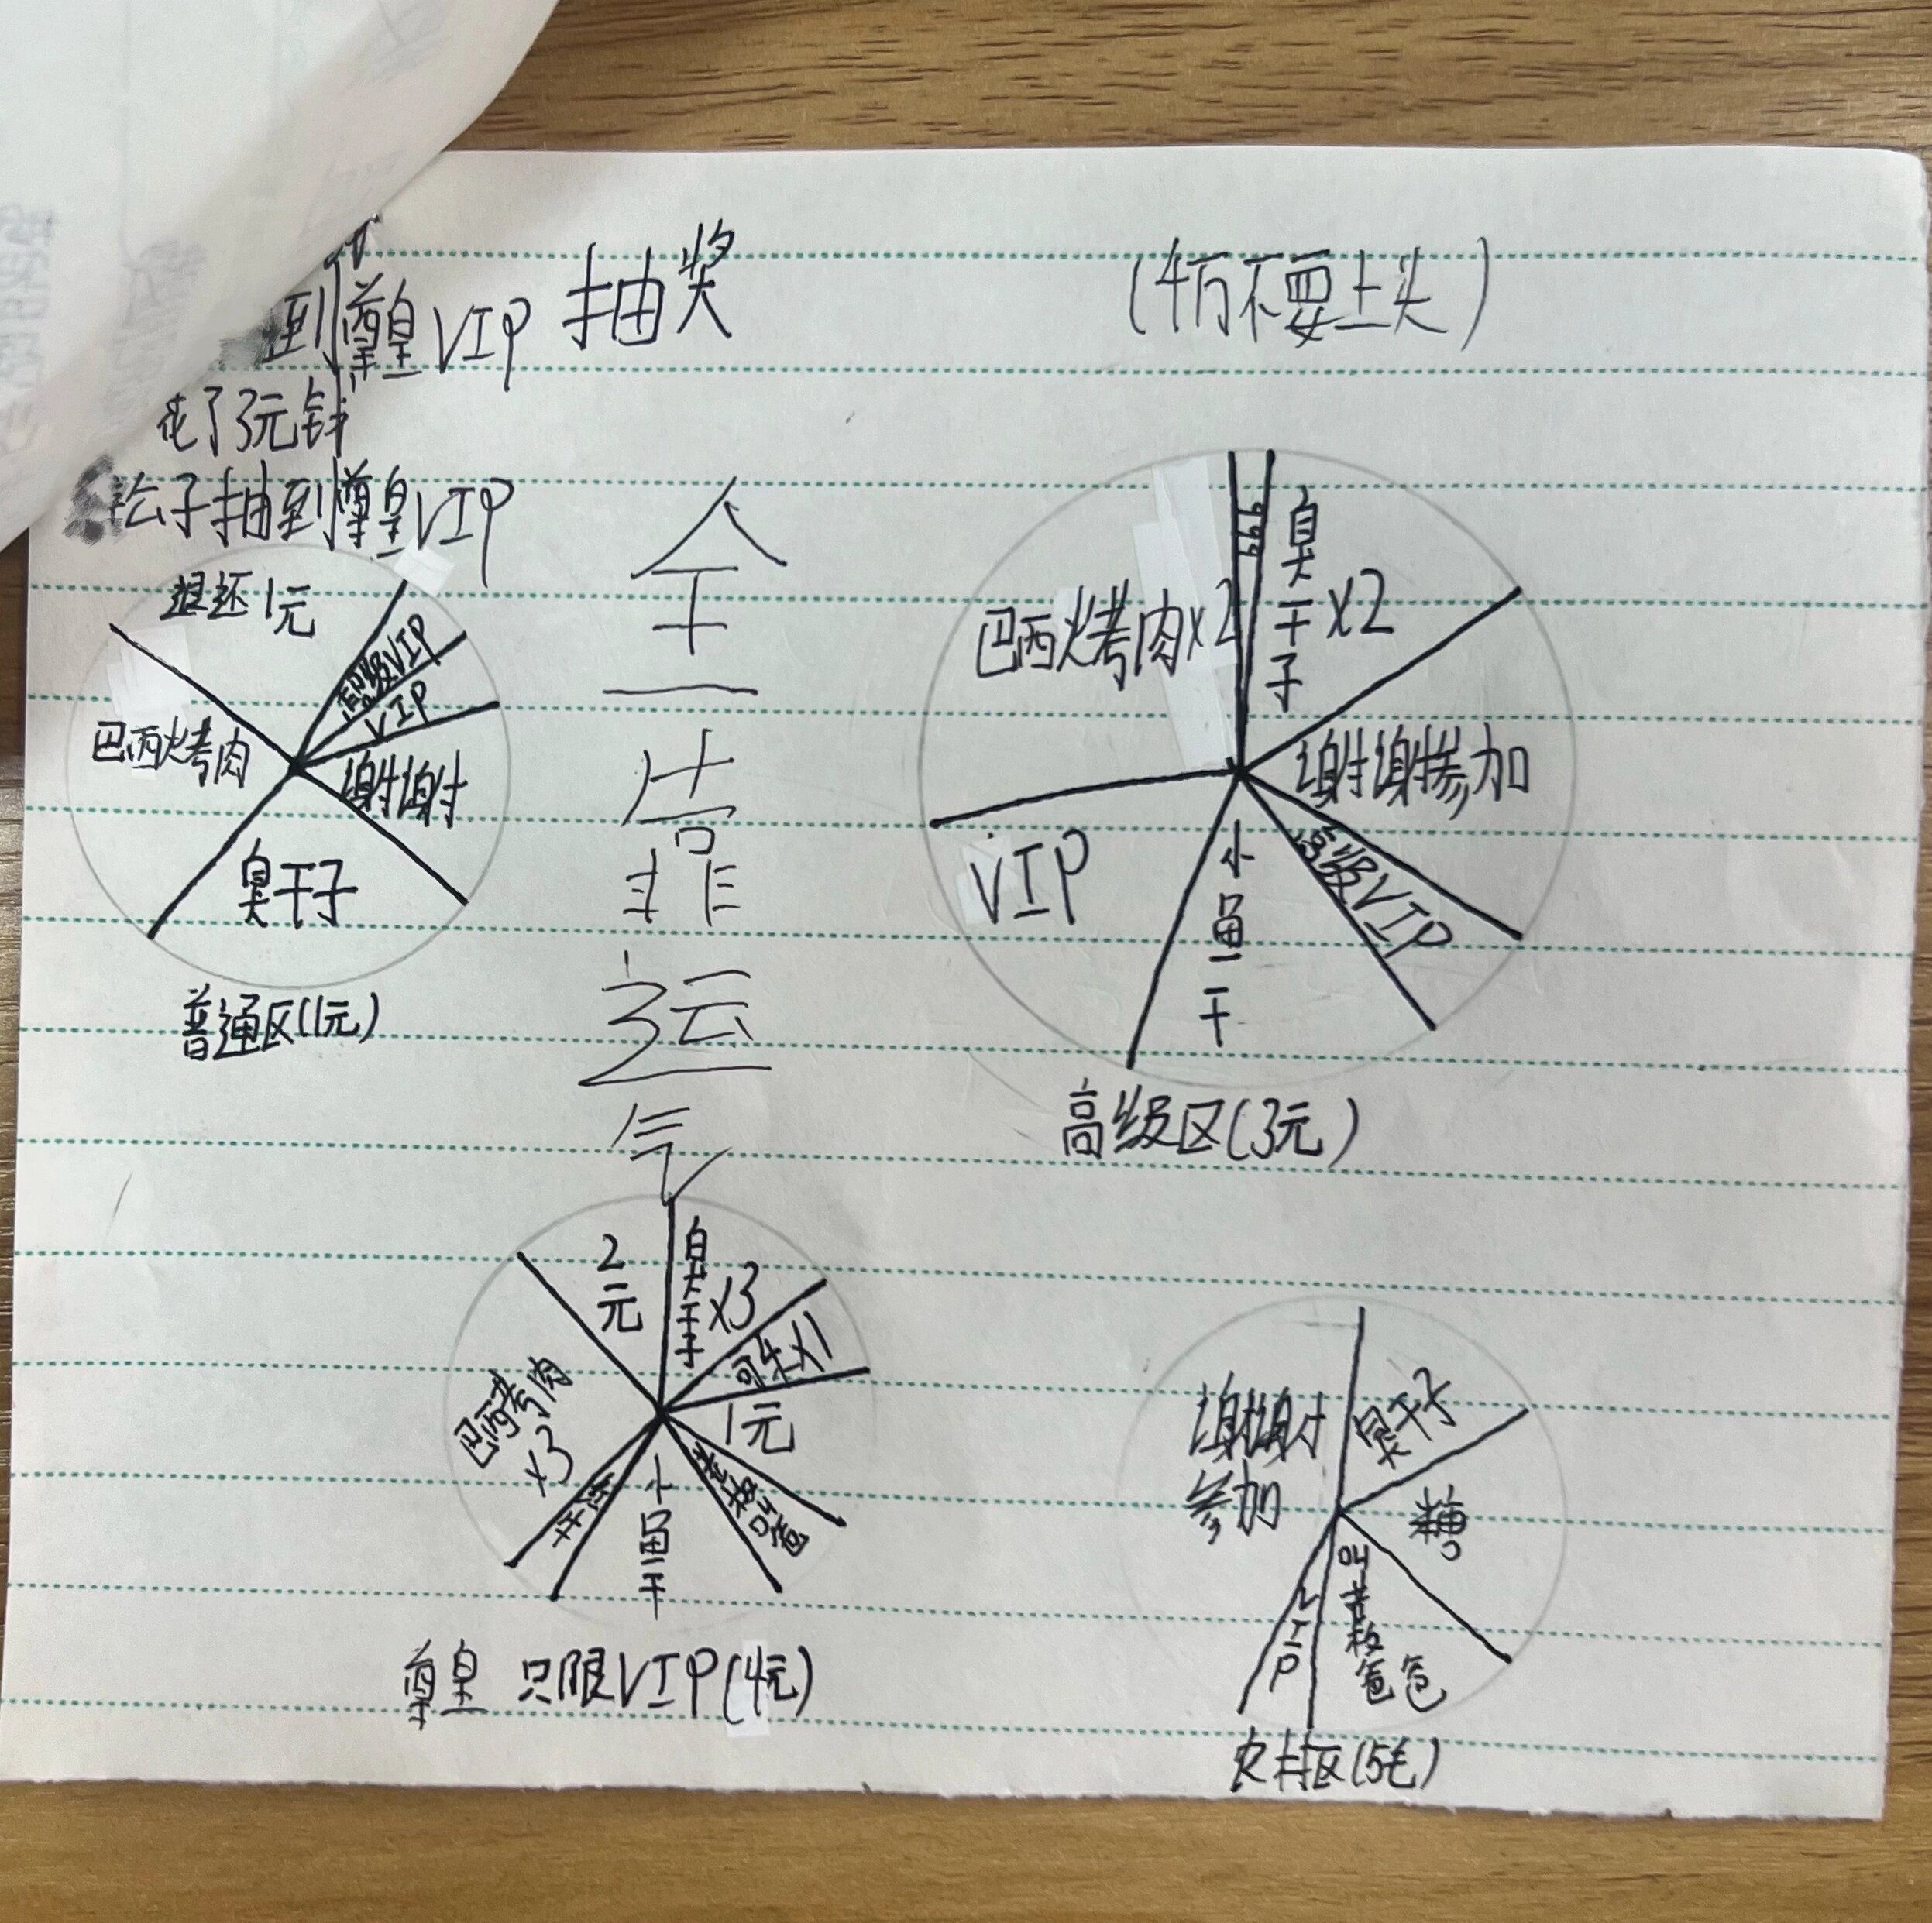 到尊皇VIP 抽奖
(千万不要上头)
花了3元钱
松子抽到尊皇VIP
全一靠运气
退还1元
高级VIP
VIP
谢谢
臭干子
巴西烤肉
普通区(1元)
999
臭干子x2
谢谢参加
高级VIP
小鱼干
VIP
巴西烤肉x2
高级区(3元)
2元
臭干子x3
可乐x1
1元
小鱼干
巴西烤肉
x3
尊皇 只限VIP(4元)
臭干子
糖
VIP
谢谢
参加
农村区(5毛)